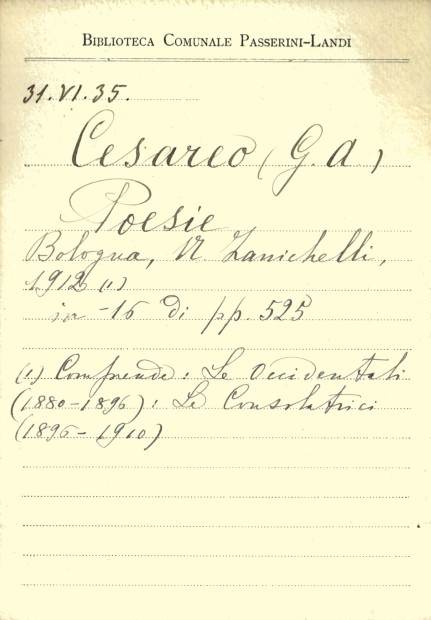 BIBLIOTECA COMUNALE PASSERINI-LANDI
31.VI.35.
Cesareo (G. A)
Poesie
Bologna, N Zanichelli,
1912 (1)
in-16 di pp. 525
(1) Comprende: Le Occidentali
(1880-1896): Le Consolatrici
(1896-1910)